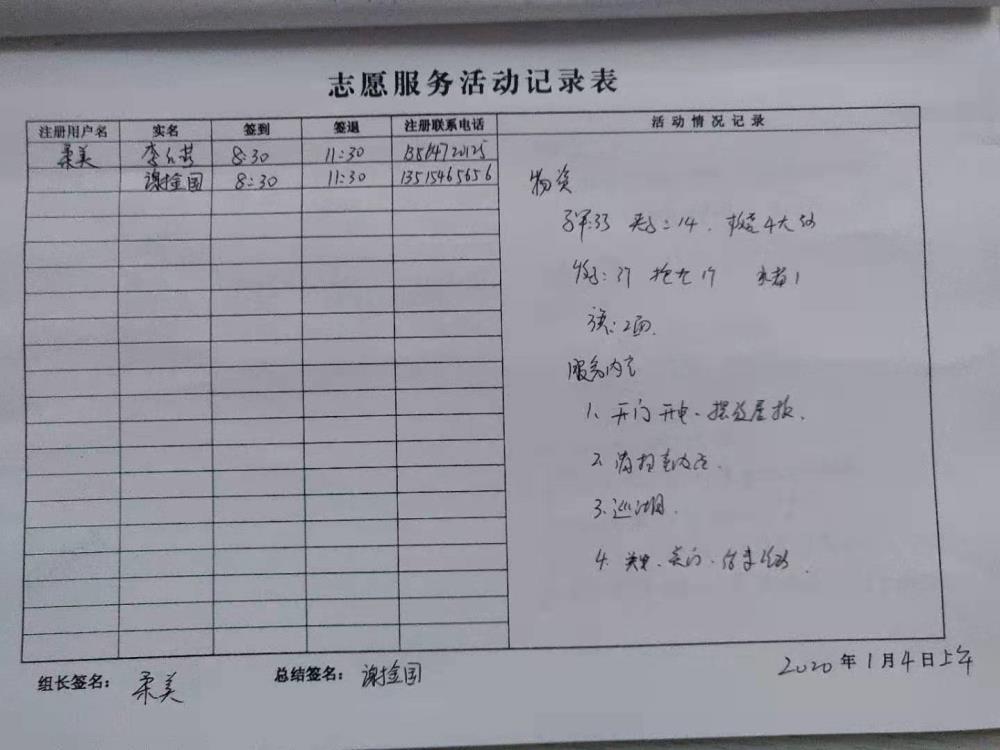 志愿服务活动记录表
注册用户名 实名 签到 签退 注册联系电话 活动情况记录
柔美 8:30 11:30
谢 国 8:30 11:30 13515465656
物资
:33 夹子:14. 4大
:37 17 1
:2面.
服务内容
1. 开门 开电、摆放展板.
2. 清扫室内外.
3. 巡湖.
4. 关电、关门、结束活动.
组长签名: 柔美 总结签名: 谢 国
2020年1月4日上午